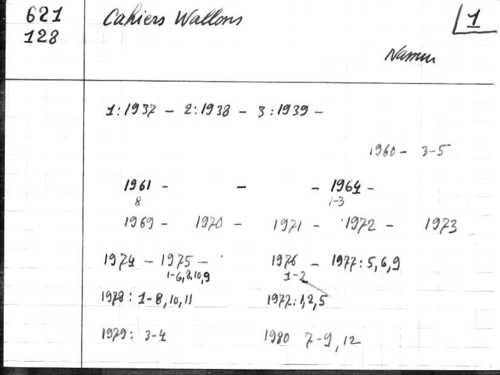 621 Cahiers Wallons 1
128
Namur
1: 1937 - 2: 1938 - 3: 1939 -
1960 - 3-5
1961 - - - 1964 -
8 1-3
1969 - 1970 - 1971 - 1972 - 1973
1974 - 1975 - 1976 - 1977: 5, 6, 9
1-6, 8, 10, 9 1-2
1978: 1-8, 10, 11 1977: 1, 2, 5
1979: 3-4 1980 7-9, 12